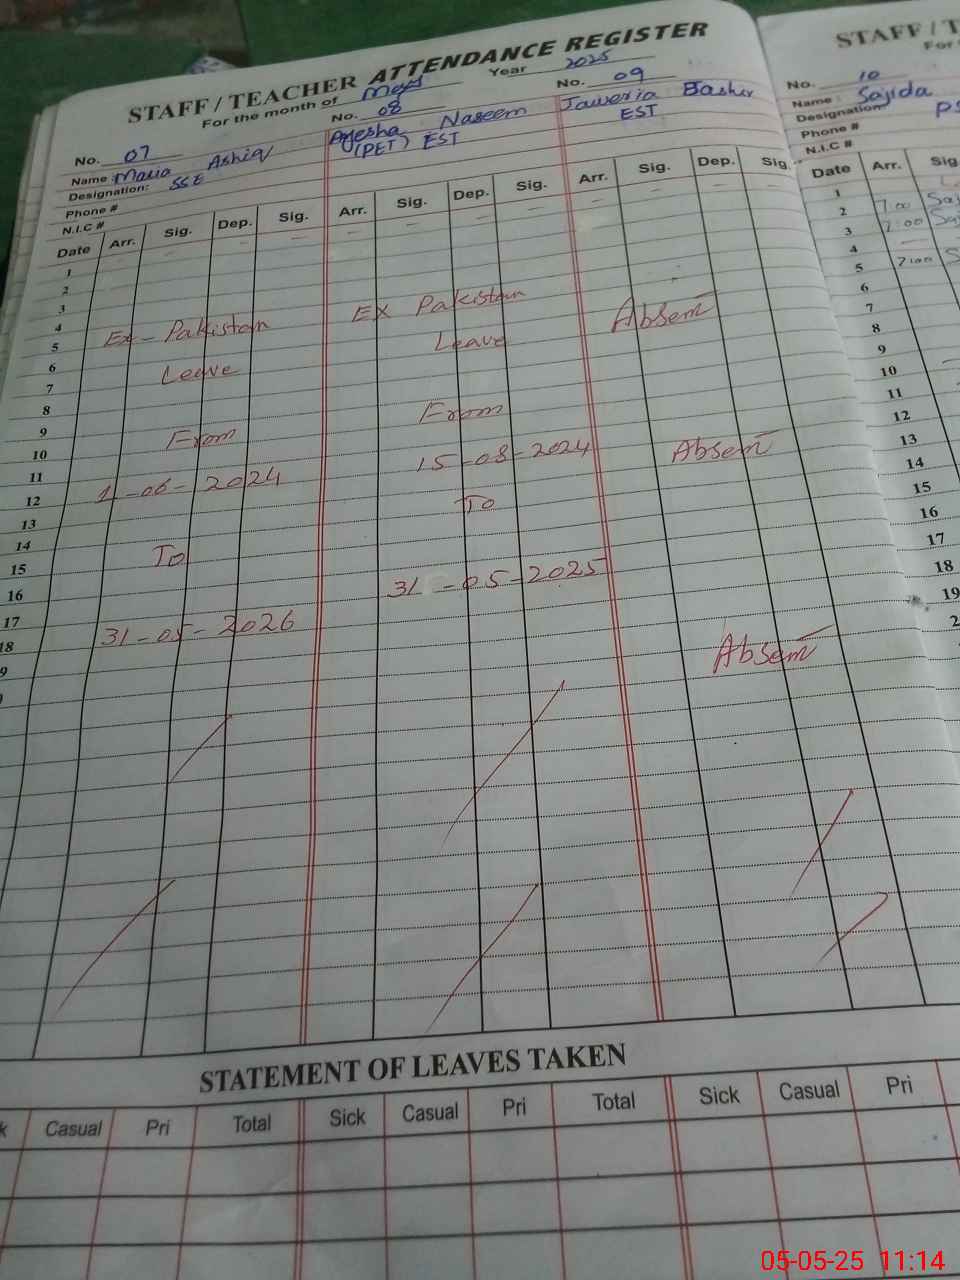 STAFF / TEACHER ATTENDANCE REGISTER
For the month of May Year 2025
No. 07
Name : Maria Ashiq
Designation: SSE
Phone #
N.I.C #
No. 08
Ayesha Naseem
(PET) EST
No. 09
Jaweria Bashir
EST
Date Arr. Sig. Dep. Sig. Arr. Sig. Dep. Sig. Arr. Sig. Dep. Sig.
1
2
3
4
5
6
7
8
9
10
11
12
13
14
15
16
17
18
Ex - Pakistan
Leave
From
1-06-2024
To
31-05-2026
EX Pakistan
Leave
From
15-08-2024
To
31-05-2025
Absent
Absent
Absent
STATEMENT OF LEAVES TAKEN
Casual Pri Total Sick Casual Pri Total Sick Casual Pri
STAFF / T
For
No. 10
Name : Sajida
Designation
Phone #
N.I.C #
Date Arr. Sig
1
2 7:00
3 7:00
4
5 7:00
6
7
8
9
10
11
12
13
14
15
16
17
18
19
05-05-25 11:14